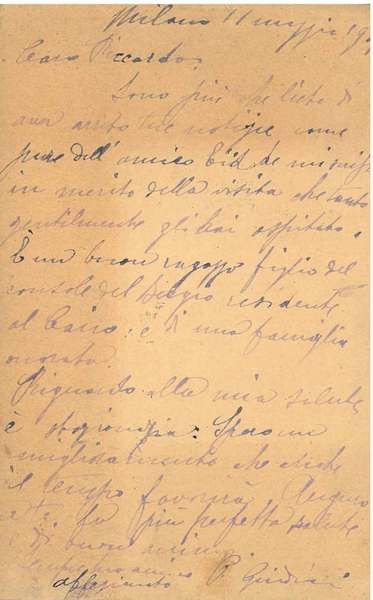 Milano 11 maggio 19
Caro Riccardo,
Sono più che lieto di
aver avuto tue notizie come
pure dell'amico Eid che mi
in merito della visita che tanto
gentilmente gli hai
È un buon ragazzo figlio del
console del Belgio residente
al Cairo: è di una famiglia
onorata.
Riguardo alla mia salute
è stazionaria. Spero un
miglioramento che anche
il tempo favorirà. Auguro
a te la più perfetta salute
e di buon
affezionato P.